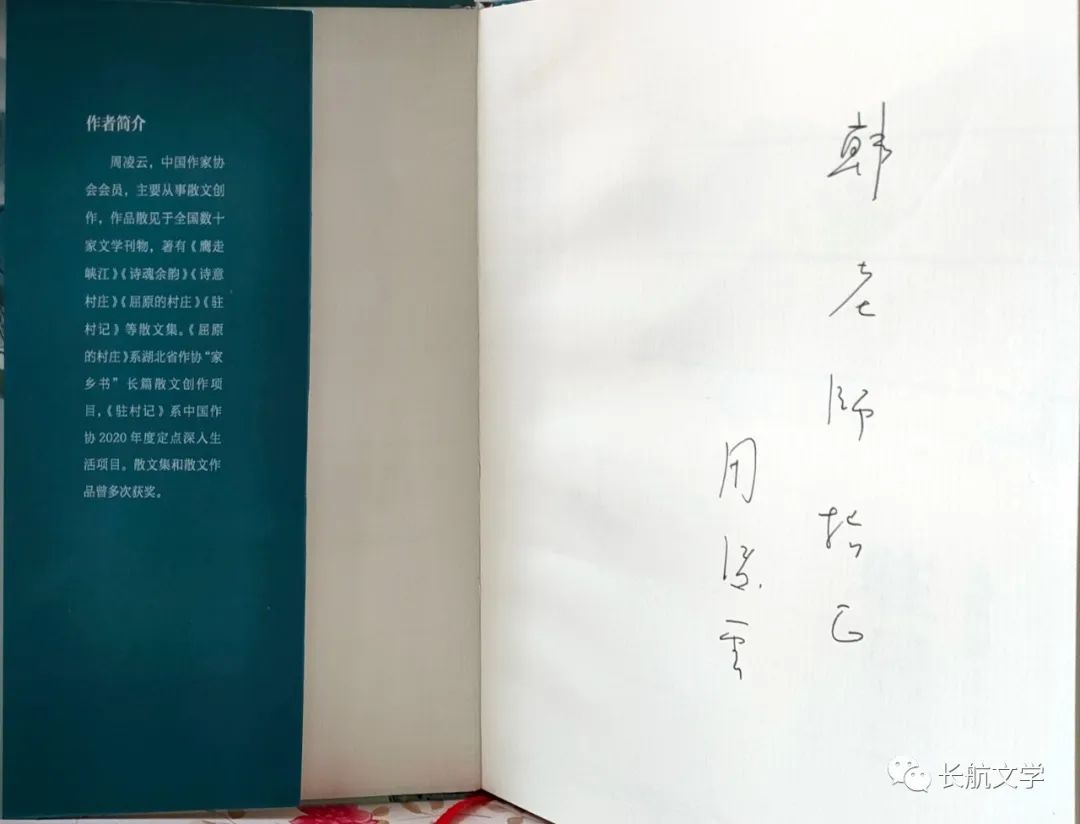 作者简介
周凌云，中国作家协
会会员，主要从事散文创
作，作品散见于全国数十
家文学刊物，著有《鹰走
峡江》《诗魂余韵》《诗意
村庄》《屈原的村庄》《驻
村记》等散文集。《屈原
的村庄》系湖北省作协“家
乡书”长篇散文创作项
目，《驻村记》系中国作
协2020年度定点深入生
活项目。散文集和散文作
品曾多次获奖。
韩老师指正
周凌云
长航文学